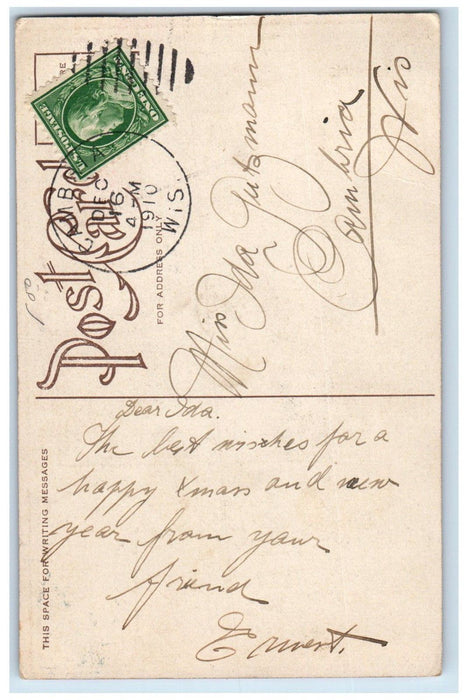 Post Card
FOR ADDRESS ONLY
U.S. POSTAGE
ONE CENT
CAMBRIA
DEC
16
4 PM
1910
WIS.
Miss Ida Gutzmann
Cambria
Wis
THIS SPACE FOR WRITING MESSAGES
Dear Ida.
The best wishes for a
happy Xmass and new
year from your
friend
Ernest.